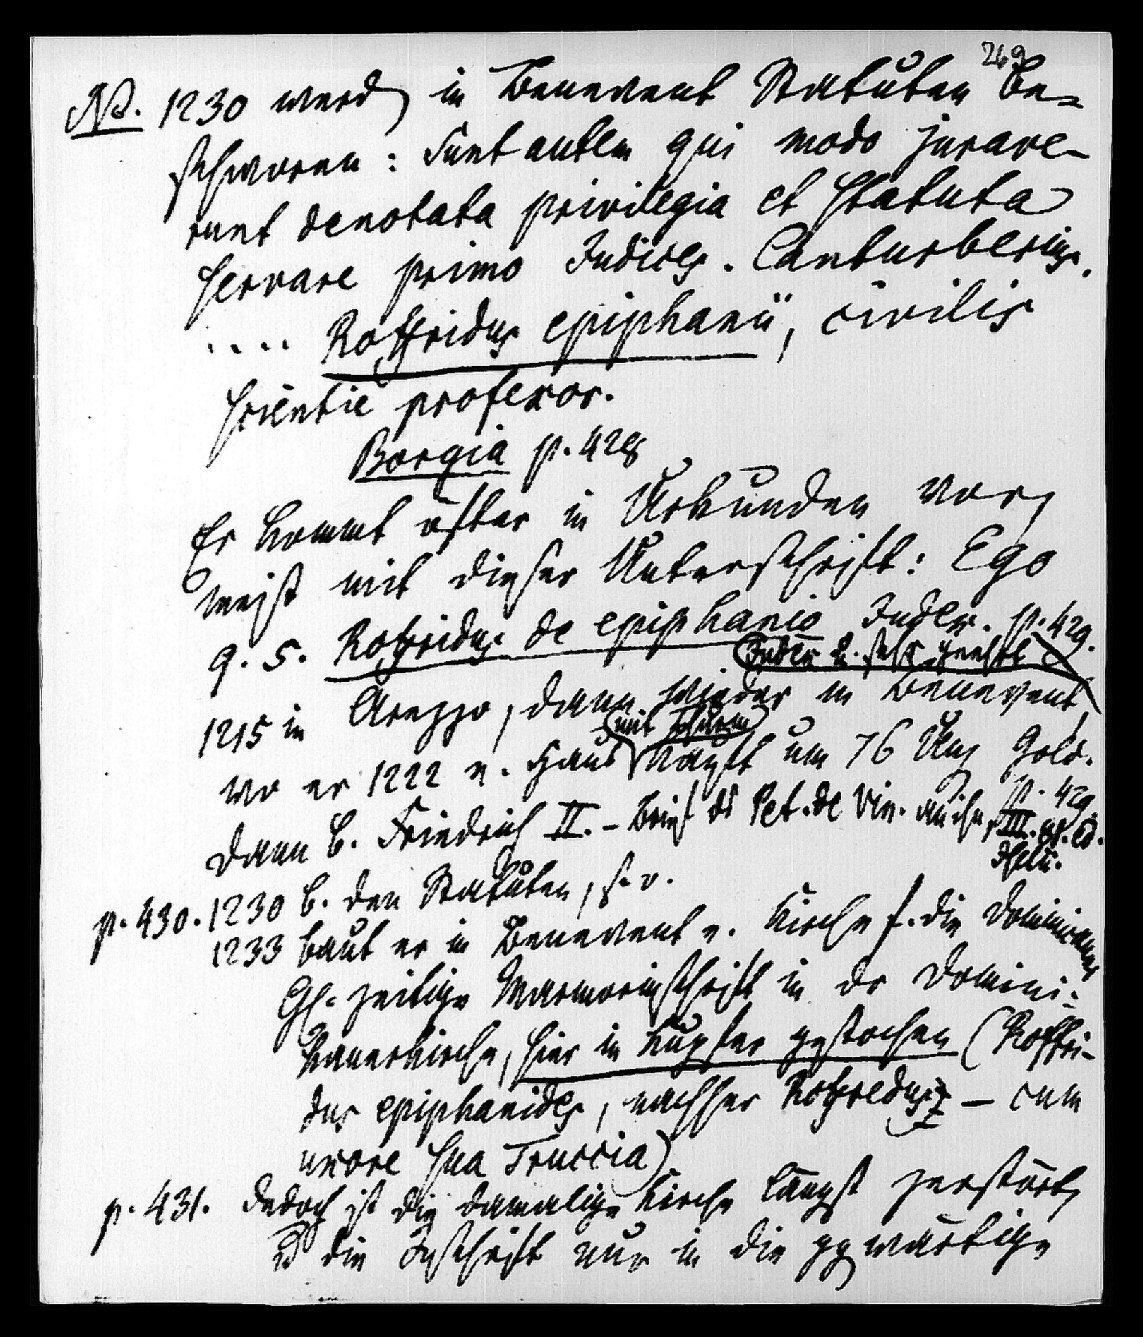 269
NB. 1230 werd in Benevent Statuten be-
schworen: Sunt autem qui modo jurave-
runt denotata privilegia et statuta
servare primo Judices. Canturberius.
.... Roffridus epiphanii, civilis
scientie professor.
Borgia p. 428
Er kommt öfter in Urkunden vor,
meist mit dieser Unterschrift: Ego
q. s. Roffridus de epiphanio Judex. p. 429.
Judex
1215 in Arezzo, dann wieder in Benevent,
mit Thurm
wo er 1222 e. Haus kauft um 76 Unz Gold.
p. 429
Dann b. Friedrich II. – Brief ds Pet. de Vin. an ihn, III.
p. 430. 1230 b. den Statuten, s. o.
1233 baut er in Benevent e. Kirche f. die Dominicaner
Gl. zeitige Marmorinschrift in dr Domini-
kanerkirche, hier in Kupfer gestochen (Roffri-
dus epiphanides, nachher Roffredus – cum
uxore sua Truccia)
p. 431. Jedoch ist die damalige Kirche längst zerstört,
u die Inschrift nur in die ggwärtige